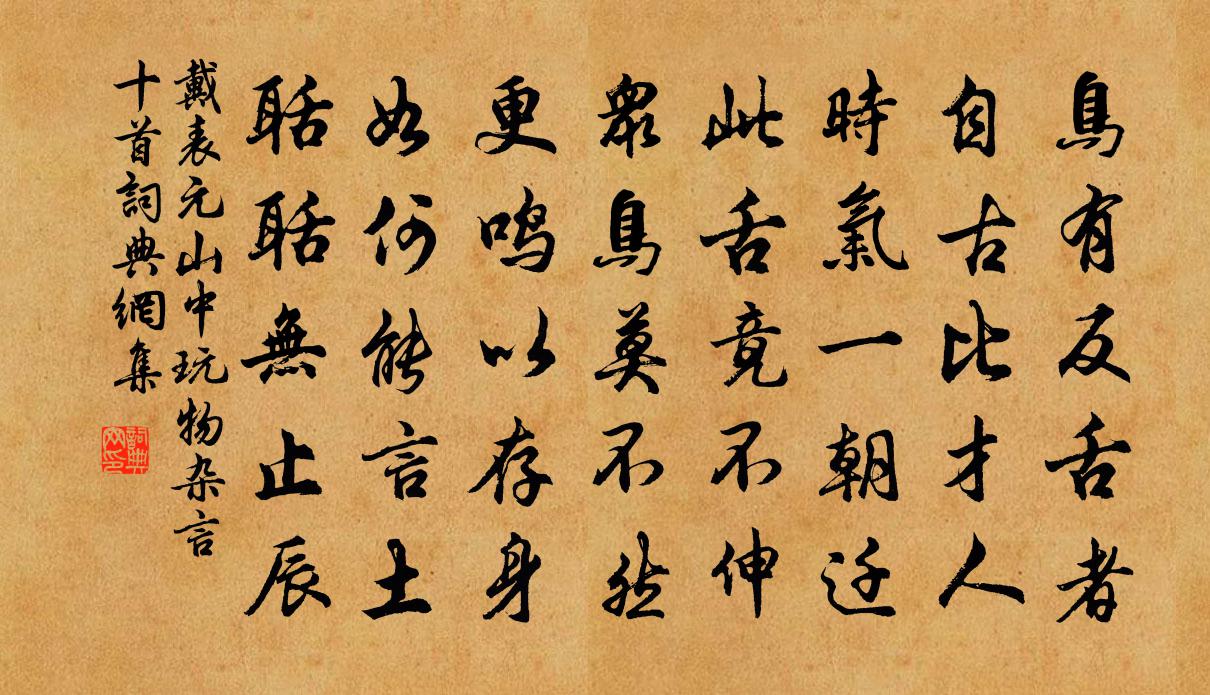 鳥有反舌者
自古比才人
時氣一朝迁
此舌竟不伸
眾鳥莫不然
更鸣以存身
如何能言土
聒聒無止辰
戴表元山中玩物杂言
十首詞典網集
詞典網印